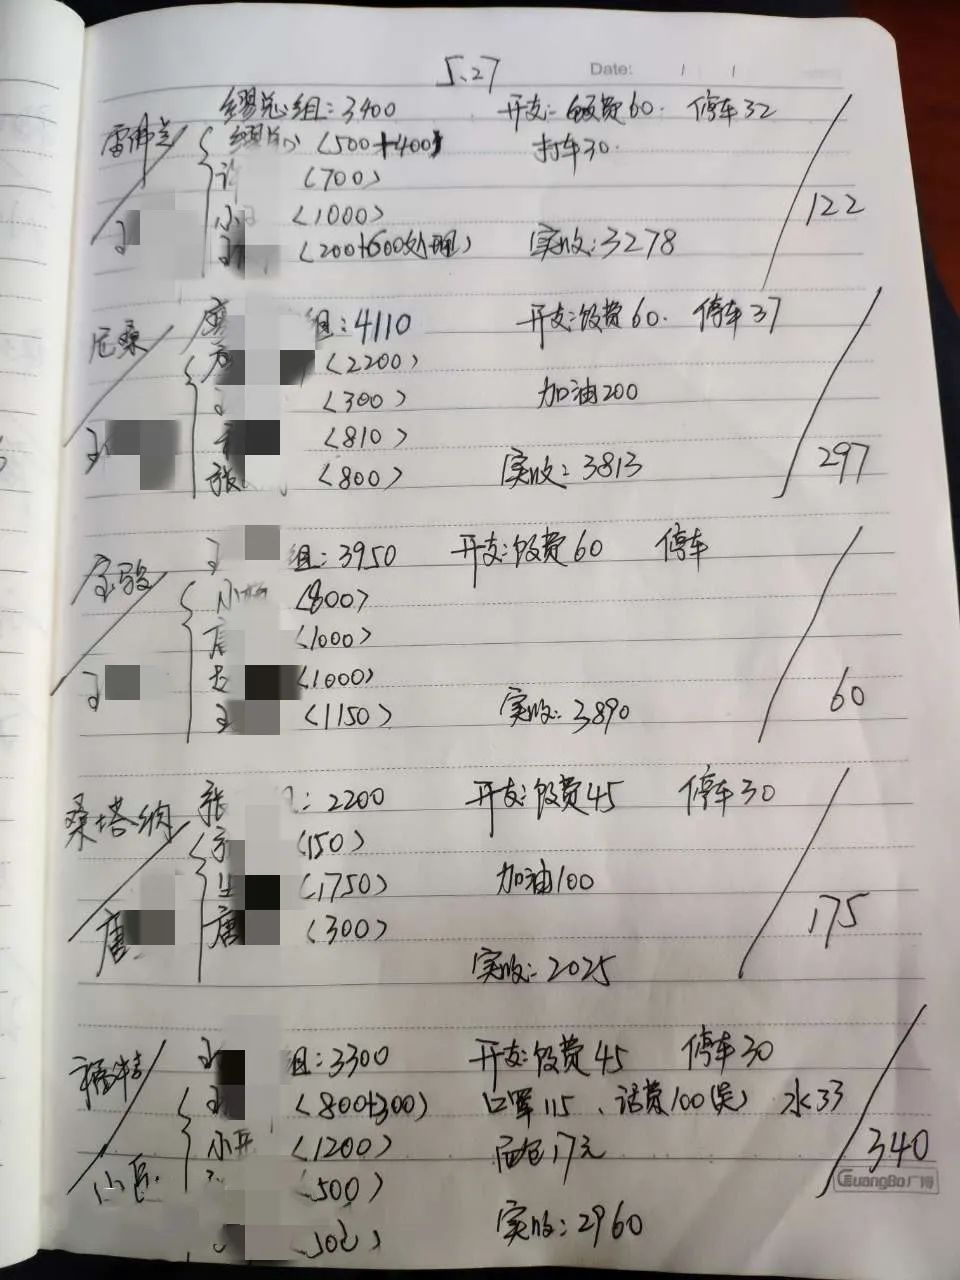 5.27 Date:
缪总组:3400 开支:饭费60. 停车32
雷佛兰 缪总 (500+400) 打车30.
(700)
小 (1000) 122
(200+600处理) 实收:3278
组:4110 开支:饭费60. 停车37
尼桑 (2200)
(300) 加油200
(810)
张 (800) 实收:3813 297
组:3950 开支:饭费60 停车
宝骏 小杨 (800)
唐 (1000)
(1000)
王 (1150) 实收:3890 60
张 :2200 开支:饭费45 停车30
桑塔纳 (150)
(1750) 加油100
唐 唐 (300) 175
实收:2025
组:3300 开支:饭费45 停车30
王 (800+300) 口罩115、话费100(吴) 水33
小 (1200) 面包17元 340
小臣 (500) GuangBo广博
实收:2960